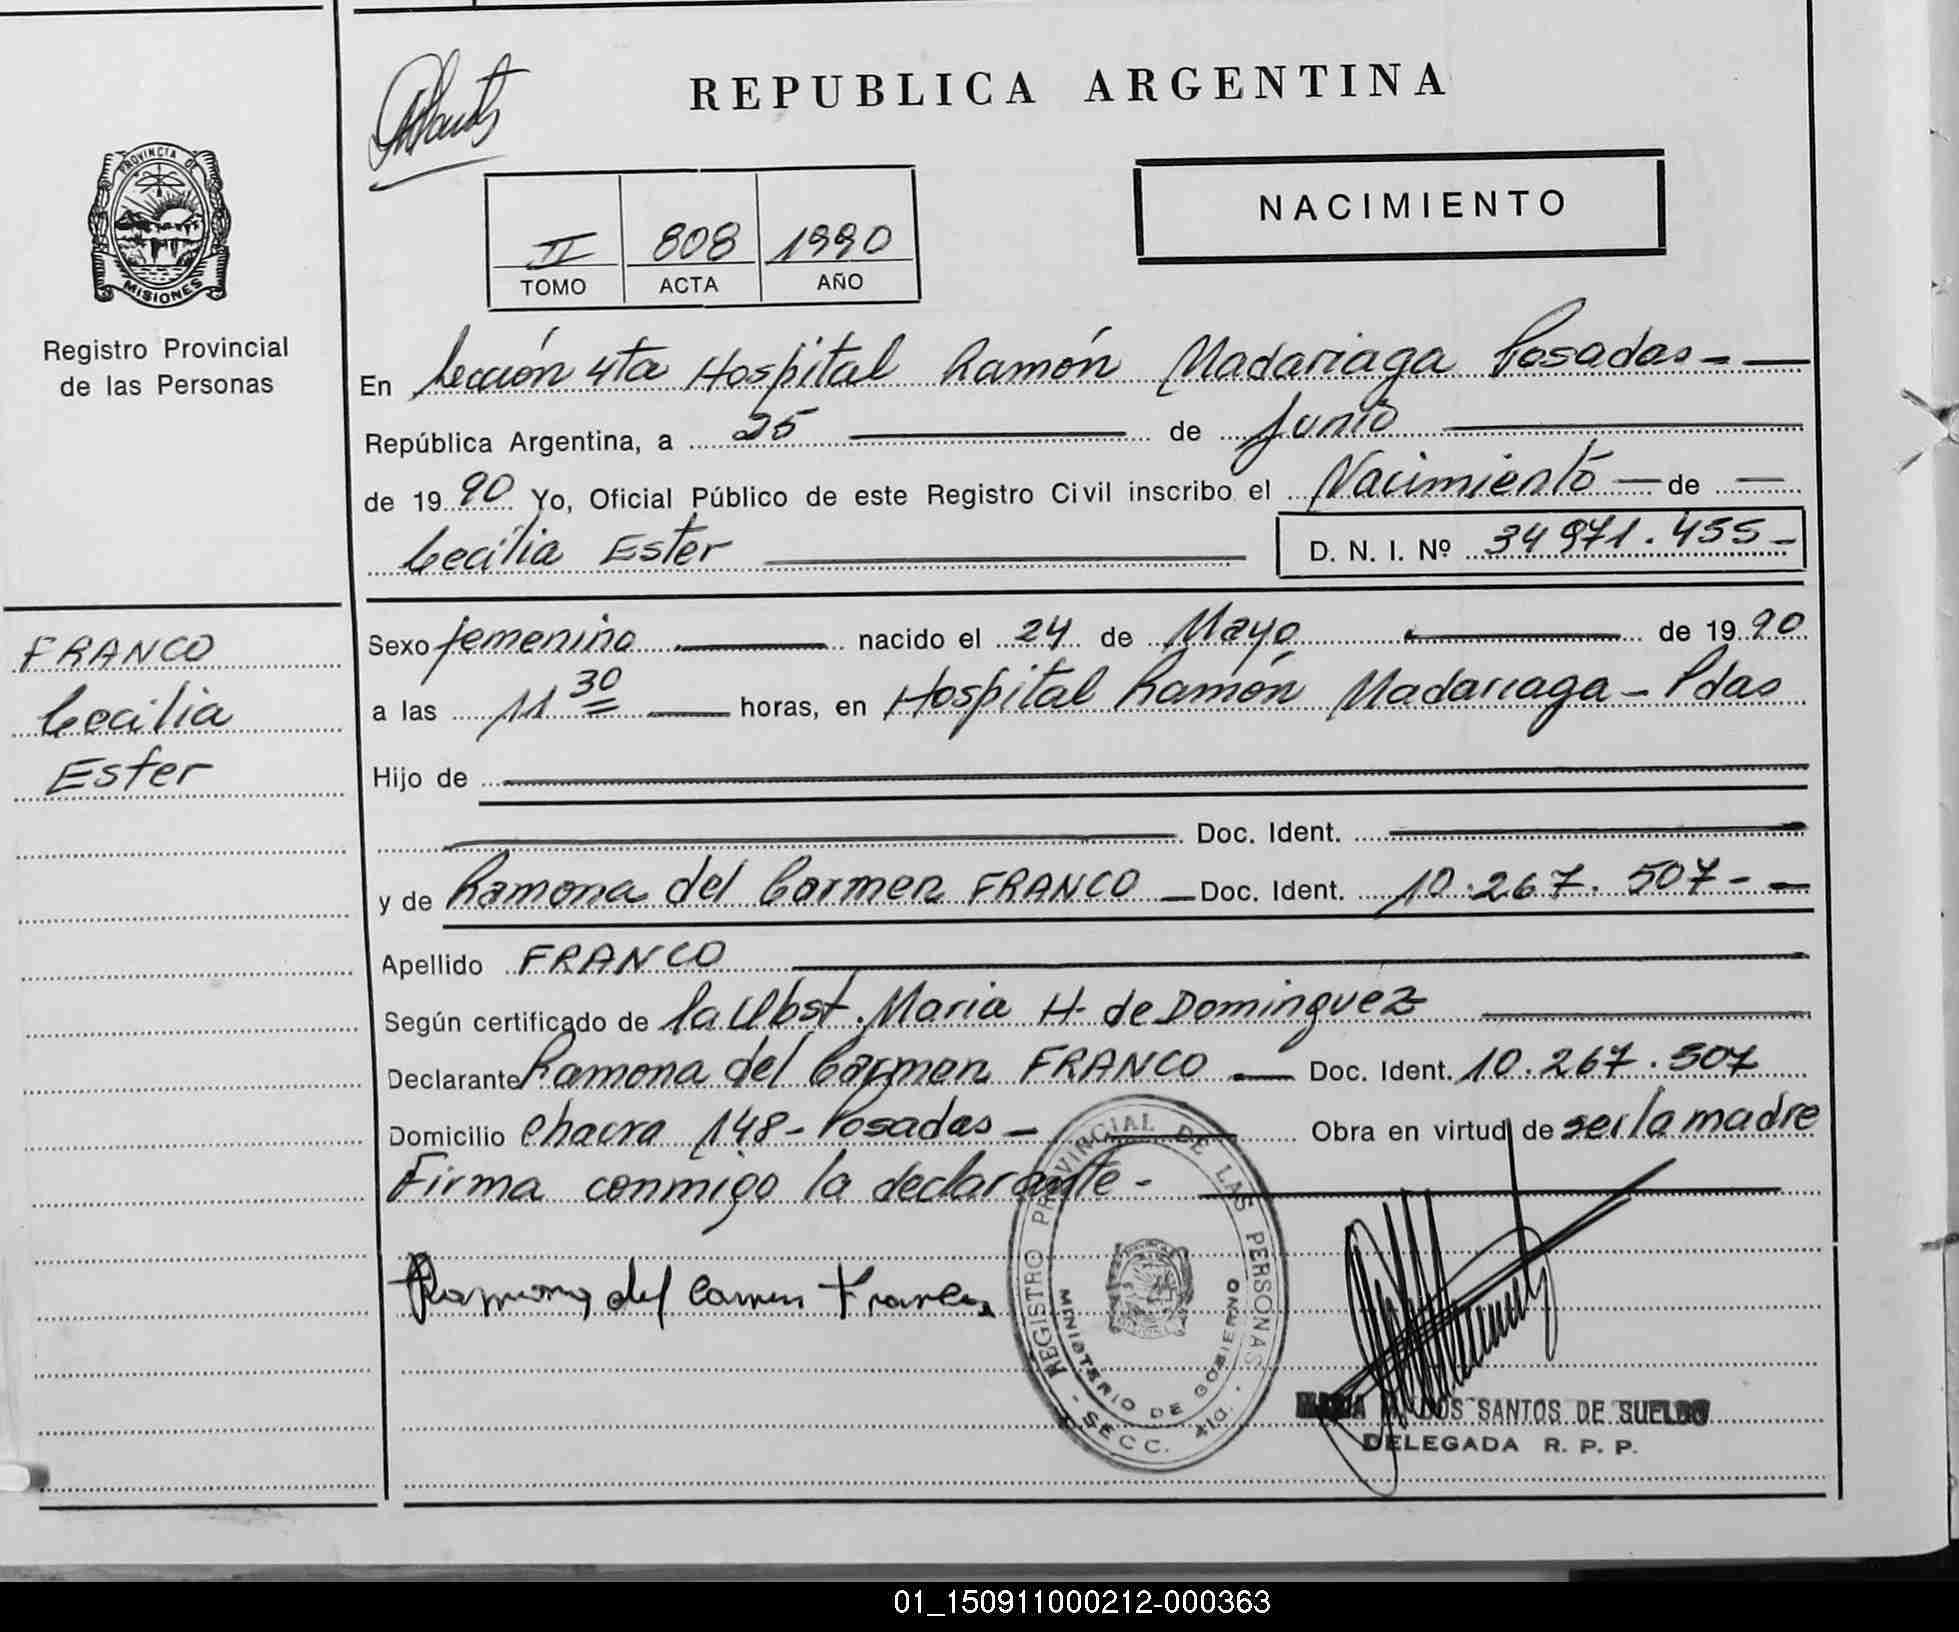 REPUBLICA ARGENTINA
NACIMIENTO
II 808 1990
TOMO ACTA AÑO
PROVINCIA DE
MISIONES
Registro Provincial
de las Personas
En Sección 4ta Hospital Ramón Madariaga Posadas -
República Argentina, a 25 de Junio
de 1990 Yo, Oficial Público de este Registro Civil inscribo el Nacimiento de
Cecilia Ester D. N. I. Nº 34971.455-
FRANCO
Cecilia
Ester
Sexo femenino nacido el 24 de Mayo de 1990
a las 11 30 horas, en Hospital Ramón Madariaga - Pdas
Hijo de
Doc. Ident.
y de Ramona del Carmen FRANCO Doc. Ident. 10.267.507-
Apellido FRANCO
Según certificado de la Obst. Maria H. de Dominguez
Declarante Ramona del Carmen FRANCO Doc. Ident. 10.267.507
Domicilio chacra 148 - Posadas - Obra en virtud de ser la madre
Firma conmigo la declarante -
Ramona del Carmen Franco
REGISTRO PROVINCIAL DE LAS PERSONAS
MINISTERIO DE GOBIERNO
- SECC. 4ta. -
DOS SANTOS DE SUELDO
DELEGADA R. P. P.
01_150911000212-000363